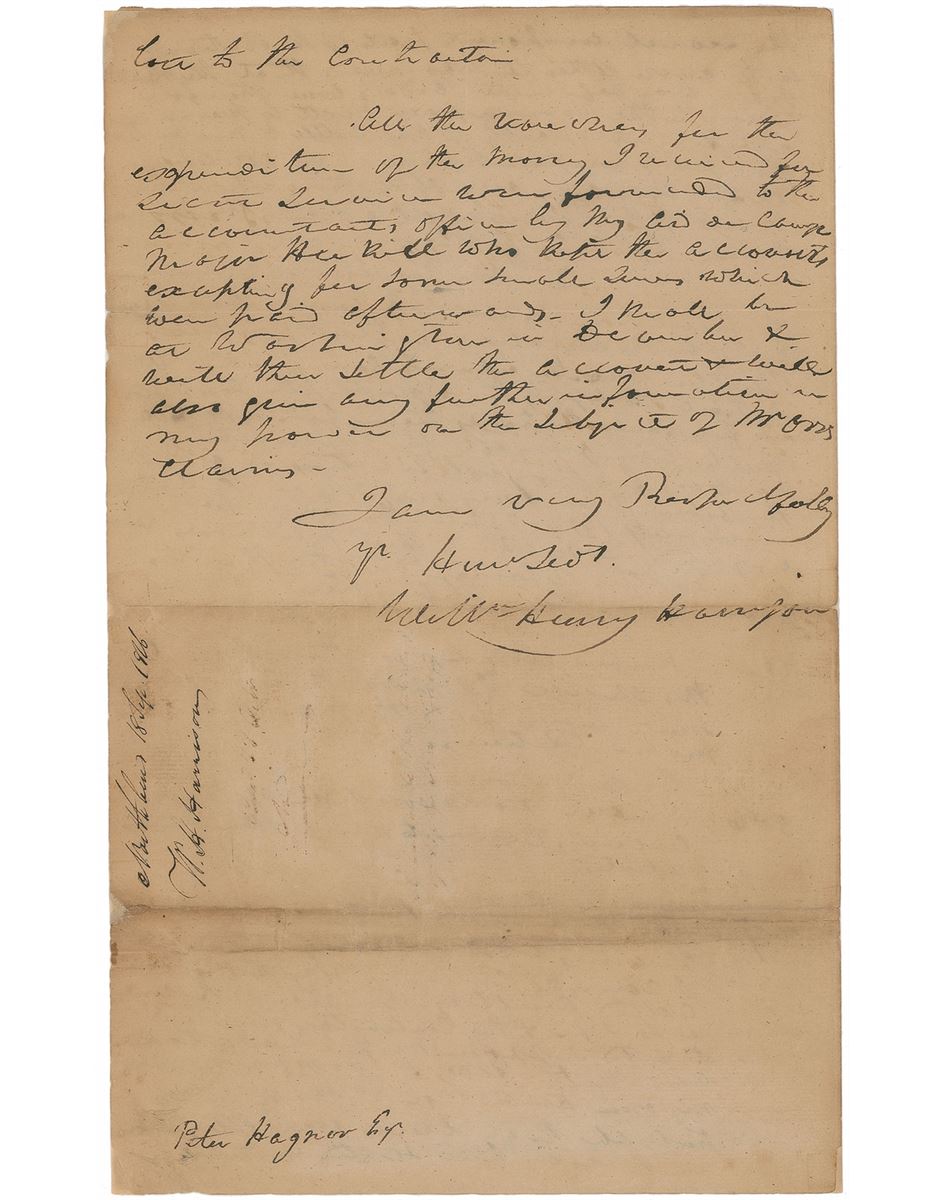 Cost to the Contractor
All the vouchers for the
expenditure of the money I received for
Secret Service were forwarded to the
accountants office by my aid de Camp
Major Hukill who kept the accounts
excepting for some small sums which
were paid afterwards - I shall be
at Washington in December &
will then settle the account & will
also give any further information in
my power on the subject of Mr Orrs
claims -
I am very Respectfully
yr Hum Servt.
Willm Henry Harrison
North bend 18 Sep. 1816
W. H. Harrison
Peter Hagner Esq.